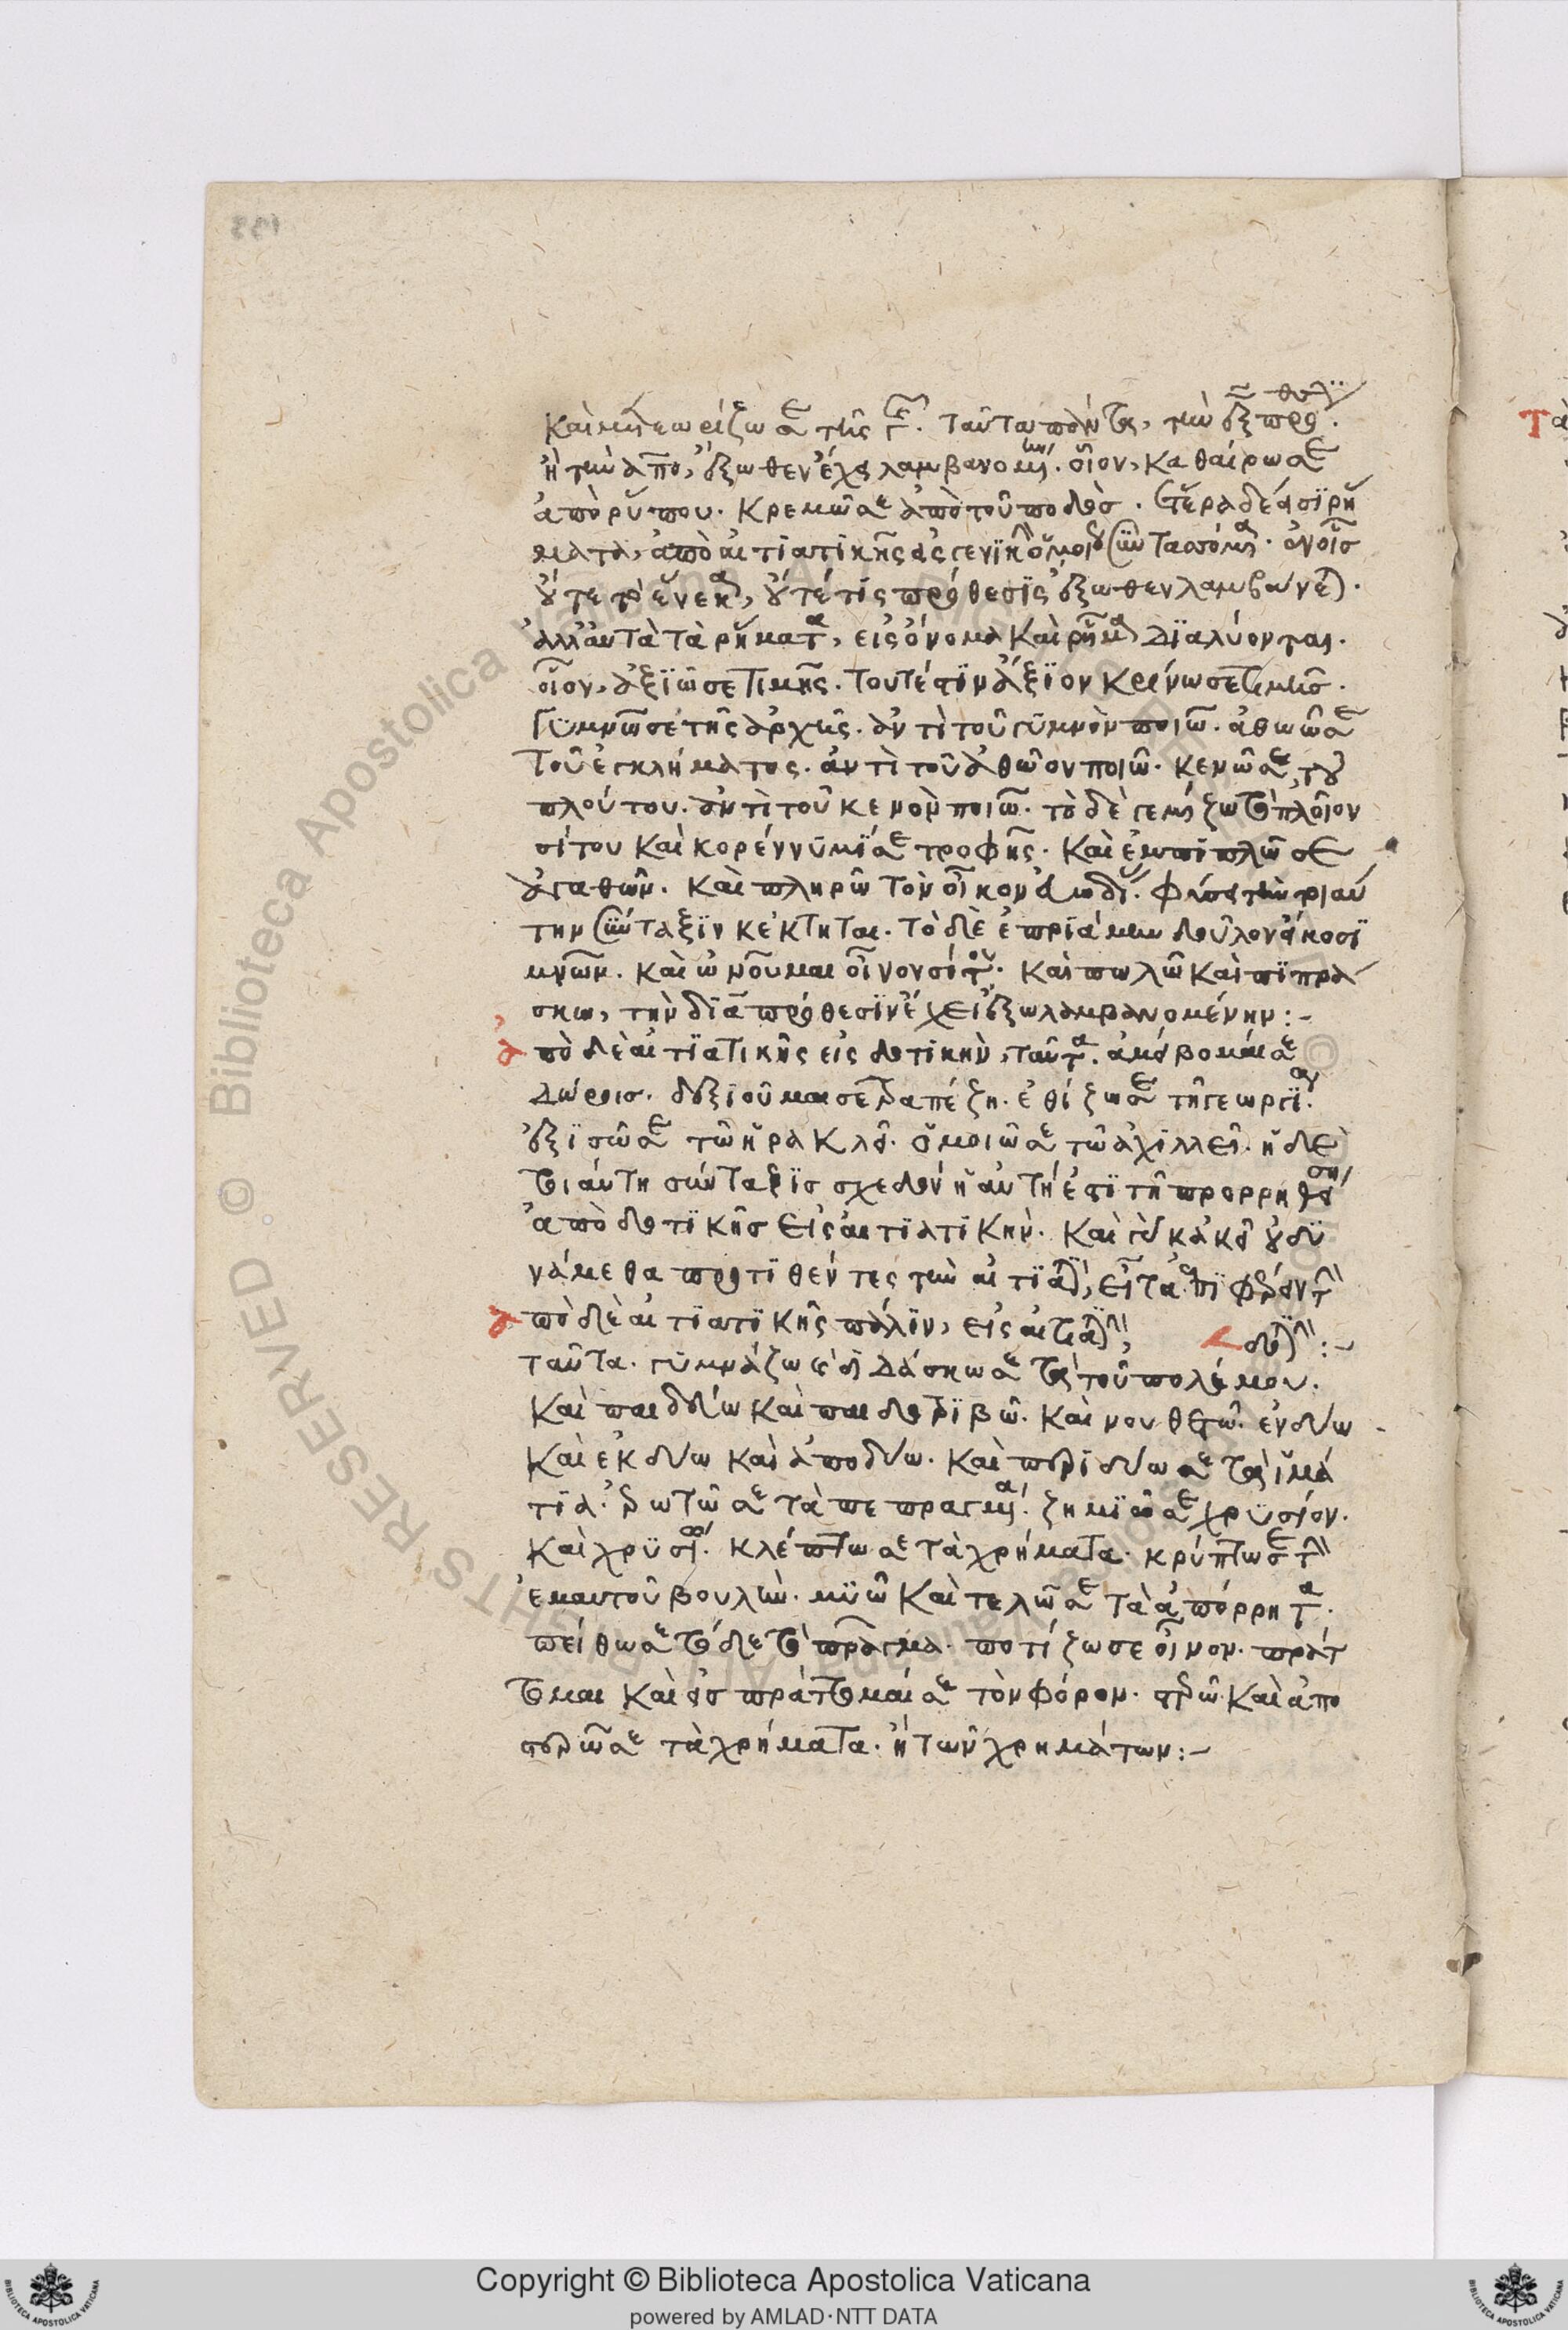 καὶ μὴν χωρίζω σε τῆς γῆς. ταῦτα πάντα, τὴν ἐξ πρόθεσιν.
ἢ τὴν ἀπο, ἔξωθεν ἔχει λαμβανομένην. οἷον, καθαίρω σε
ἀπὸ ῥύπου. κρεμῶ σε ἀπὸ τοῦ ποδός. ἕτερα δέ εἰσι ῥή
ματα, ἀπὸ αἰτιατικῆς εἰς γενικὴν ὁμοίως συντασσόμενα. ἐν οἷς
οὔτε τὸ ἕνεκα, οὔτέ τις πρόθεσις ἔξωθεν λαμβάνεται.
ἀλλ' αὐτὰ τὰ ῥήματα, εἰς ὄνομα καὶ ῥῆμα διαλύονται.
οἷον, ἀξιῶ σε τιμῆς. τουτέστιν ἄξιον κρίνω σε τιμῆς.
γυμνῶ σε τῆς ἀρχῆς. ἀντὶ τοῦ γυμνὸν ποιῶ. ἀθωῶ σε
τοῦ ἐγκλήματος. ἀντὶ τοῦ ἀθῶον ποιῶ. κενῶ σε τοῦ
πλούτου. ἀντὶ τοῦ κενὸν ποιῶ. τὸ δὲ γεμίζω τὸ πλοῖον
σίτου καὶ κορέννυμί σε τροφῆς. καὶ ἐμπιπλῶ σε
ἀγαθῶν. καὶ πληρῶ τὸν οἶκον
την σύνταξιν κέκτηται. τὸ δὲ ἐπριάμην δοῦλον εἴκοσι
μνῶν. καὶ ὠνοῦμαι οἶνον σίτου. καὶ πωλῶ καὶ πιπρά
σκω, τὴν διὰ πρόθεσιν ἔχει ἔξω λαμβανομένην:-
ἀπὸ δὲ αἰτιατικῆς εἰς δοτικὴν, ταῦτα. ἀμείβομαί σε
δώροις. δεξιοῦμαι σε τραπέζῃ. ἐθίζω σε τῇ γεωργίᾳ.
ἐξισῶ σε τῷ ἡρακλεῖ. ὁμοιῶ σε τῷ ἀχιλλεῖ. ἡ δὲ
τοιαύτη σύνταξις σχεδὸν ἡ αὐτή ἐστι τῇ προρρηθείσῃ
ἀπὸ δοτικῆς εἰς αἰτιατικήν. καὶ γὰρ κἀκεῖ
νάμεθα προτιθέντες τὴν αἰτιατικὴν, εἶτα ἐπιφέρειν τὴν
ἀπὸ δὲ αἰτιατικῆς πάλιν, εἰς αἰτιατικὴν, δοτικὴν:-
ταῦτα. γυμνάζω διδάσκω σε τὰ τοῦ πολέμου.
καὶ παιδεύω καὶ παιδοτριβῶ. καὶ νουθετῶ. ἐνδύω
καὶ ἐκδύω καὶ ἀποδύω. καὶ περιδύω σε τὰ ἱμά
τια. ἐρωτῶ σε τὰ πεπραγμένα. ζημιῶ σε χρυσίον.
καὶ χρυσίῳ. κλέπτω σε τὰ χρήματα. κρύπτω σε τὴν
ἐμαυτοῦ βουλὴν. μυῶ καὶ τελῶ σε τὰ ἀπόρρητα.
πείθω σε τόδε τὸ πρᾶγμα. ποτίζω σε οἶνον. πράτ
τομαι καὶ εἰσπράττομαί σε τὸν φόρον. στερῶ καὶ ἀπο
στερῶ σε τὰ χρήματα. ἢ τῶν χρημάτων:-
Copyright © Biblioteca Apostolica Vaticana
powered by AMLAD·NTT DATA